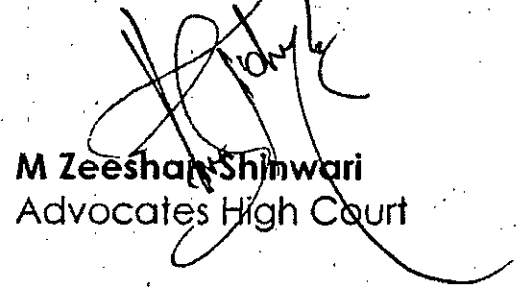 M Zeeshan Shinwari
Advocates High Court